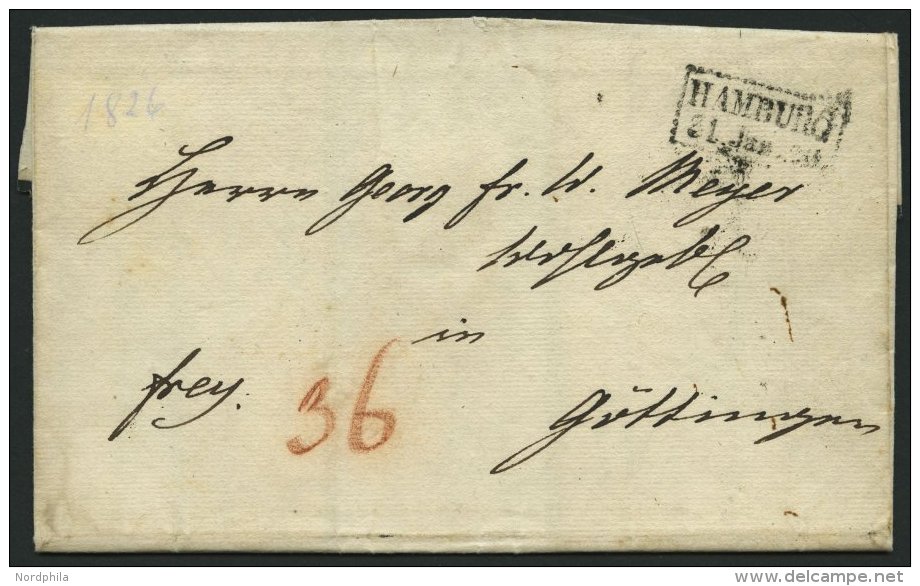 1826
HAMBURG
31. Jan. 26
Herrn Georg Fr. W. Meyer
Wohlgeb.
in
frey.
36
Göttingen
Nordphila
www.delcampe.net